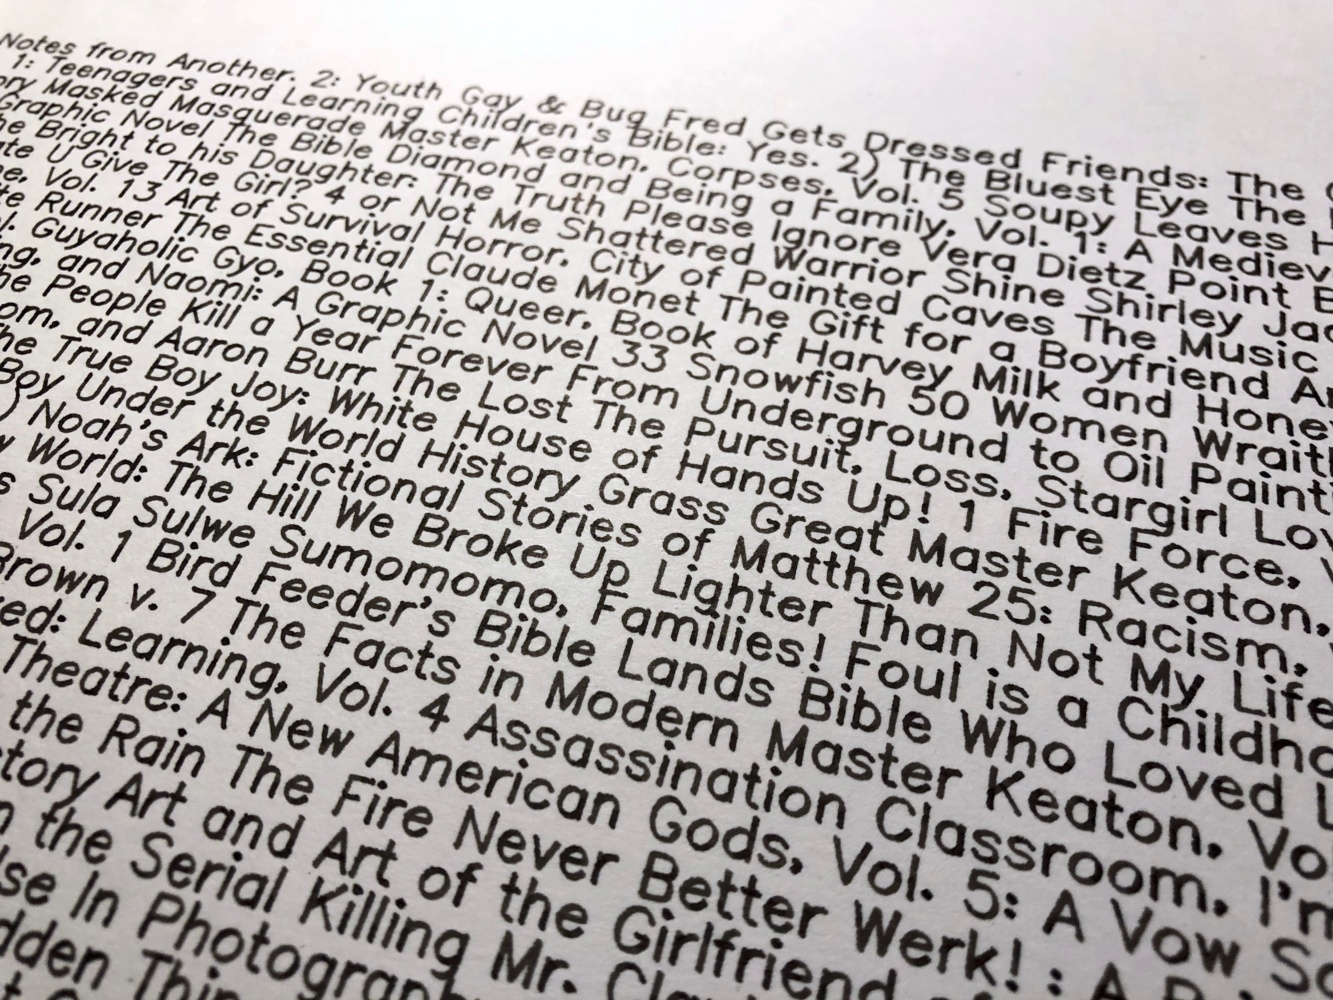 Notes from Another. 2: Youth Gay & Bug Fred Gets Dressed Friends: The
1: Teenagers and Learning Children's Bible: Yes. 2) The Bluest Eye The
ory Masked Masquerade Master Keaton, Corpses, Vol. 5 Soupy Leaves H
Graphic Novel The Bible Diamond and Being a Family, Vol. 1: A Mediev
he Bright to his Daughter: The Truth Please Ignore Vera Dietz Point B
ate U Give The Girl? 4 or Not Me Shattered Warrior Shine Shirley Jac
ne, Vol. 13 Art of Survival Horror, City of Painted Caves The Music
te Runner The Essential Claude Monet The Gift for a Boyfriend Ar
l: Guyaholic Gyo, Book 1: Queer, Book of Harvey Milk and Hone
ng, and Naomi: A Graphic Novel 33 Snowfish 50 Women Wraith
he People Kill a Year Forever From Underground to Oil Paint
om, and Aaron Burr The Lost The Pursuit, Loss, Stargirl Lov
he True Boy Joy: White House of Hands Up! 1 Fire Force, V
Boy Under the World History Grass Great Master Keaton,
) Noah's Ark: Fictional Stories of Matthew 25: Racism,
w World: The Hill We Broke Up Lighter Than Not My Life
s Sula Sulwe Sumomomo, Families! Foul is a Childho
Vol. 1 Bird Feeder's Bible Lands Bible Who Loved L
Brown v. 7 The Facts in Modern Master Keaton, Vo
ed: Learning, Vol. 4 Assassination Classroom, I'm
Theatre: A New American Gods, Vol. 5: A Vow So
the Rain The Fire Never Better Werk! : A
tory Art and Art of the Girlfriend
n the Serial Killing Mr.
lse In Photograph
dden Thin